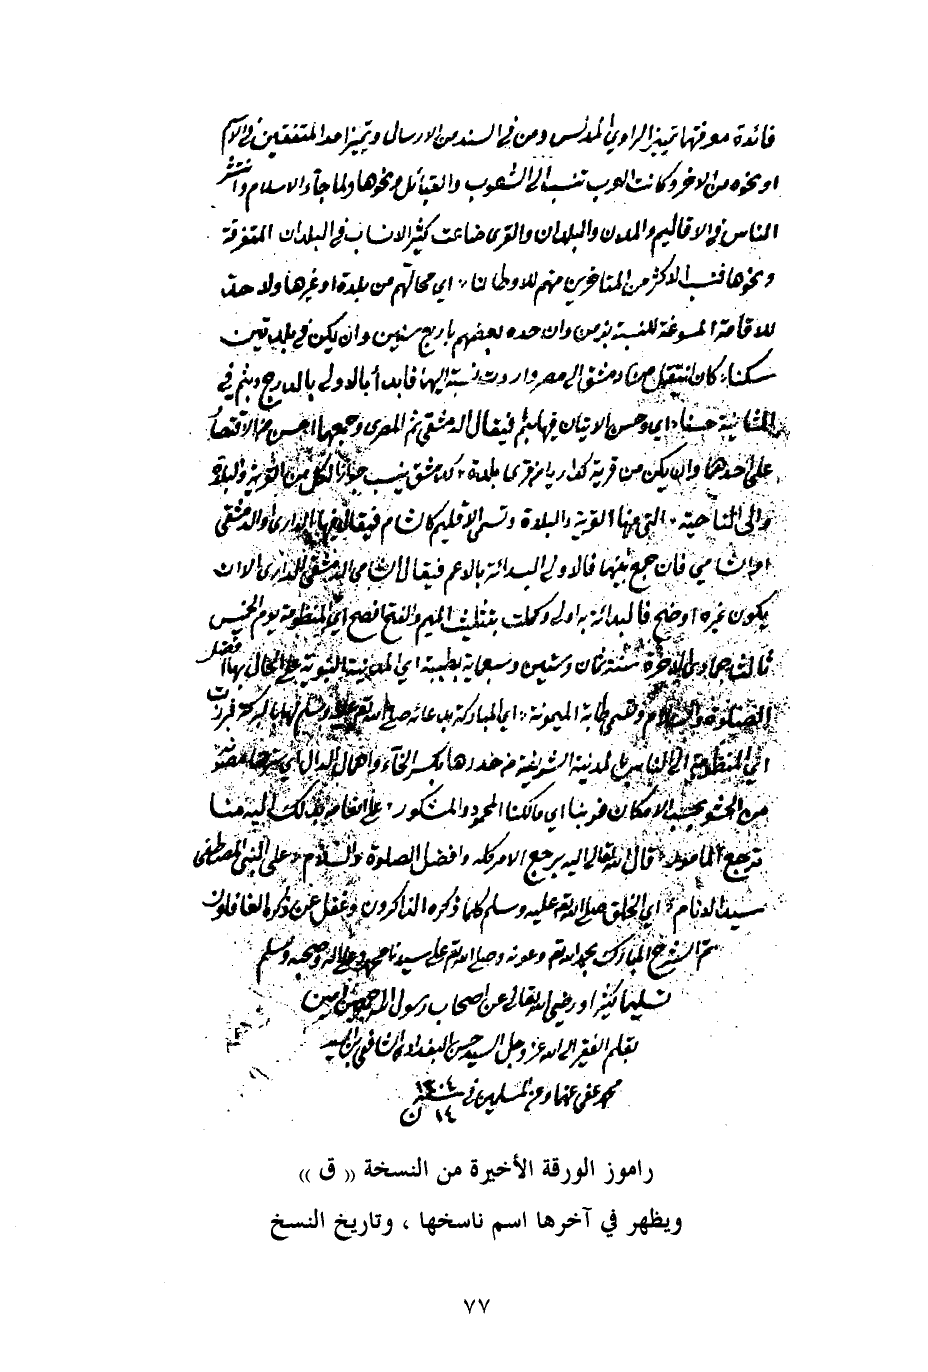 فائدة معرفتها تمييز الراوي المدلس ومن في السند من الارسال وتميز احد المتفقين في الاسم
او نحوه من الاخر وكانت العرب تنسب الى الشعوب والقبائل ونحوها ولما جاء الاسلام وانتشر
الناس في الاقاليم والمدن والبلدان والقرى ضاعت كثير الانساب في البلدان المتفرقة
ونحوها فنسب الاكثر من المتاخرين منهم للاوطان اي محالهم من بلدة او غيرها ولا حد
للاقامة المسوغة للنسبة بزمن وان حده بعضهم باربع سنين وان يكن في بلدتين
سكنا كان انتقل من دمشق الى مصر واردت نسبة اليهما فابدأ بالاولى بالدرج وبثم في
الثانية حسنا اي وحسن الاتيان فيها بثم فيقال الدمشقي ثم المصري وجمعها احسن من الاقتصار
على احدهما وان يكن من قرية كداريا من قرى بلدة كدمشق ينسب جوازا لكل من القرية والبلدة
والى الناحية التي منها القرية والبلدة وتسمى الاقليم كالشام فيقال فيها الداري او الدمشقي
او الشامي فان جمع بينها فالاولى البداءة بالاعم فيقال الشامي الدمشقي الداري الا ان
يكون غيره اوضح فالبداءة به اولى وكملت بتثليث الميم والفتح افصح اي المنظومة يوم الخميس
ثالث جمادى الاخرة سنة ثمان وستين وسبعماية بطيبة اي المدينة النبوية على الحال بها افضل
الصلوة والسلام وهي طابة الميمونة اي المباركة بدعائه صلى الله عليه وسلم لها بالبركة فبرزت
اي المنظومة الى الناس بالمدينة الشريفة من خدرها بكسر الخاء واهمال الدال اي سترها مصونة
من الحشو بحسب الامكان فربنا اي مالكنا المحمود والمشكور على انعامه بذلك اليه منا
ترجع الامور قال الله تعالى اليه يرجع الامر كله وافضل الصلوة والسلام على النبي المصطفى
سيد الانام اي الخلق صلى الله عليه وسلم كلما ذكره الذاكرون وغفل عن ذكره الغافلون
تم الشرح المبارك بحمد الله وعونه وصلى الله على سيدنا محمد وعلى اله وصحبه وسلم
تسليما كثيرا ورضي الله تعالى عن اصحاب رسول الله اجمعين امين
بقلم الفقير الى الله عز وجل السيد حسن البغدادي الشافعي بن السيد
محمد عفي عنهما وعن المسلمين في سنة ١٣٠٤
١٤ ن
راموز الورقة الأخيرة من النسخة (( ق ))
ويظهر في آخرها اسم ناسخها ، وتاريخ النسخ
٧٧